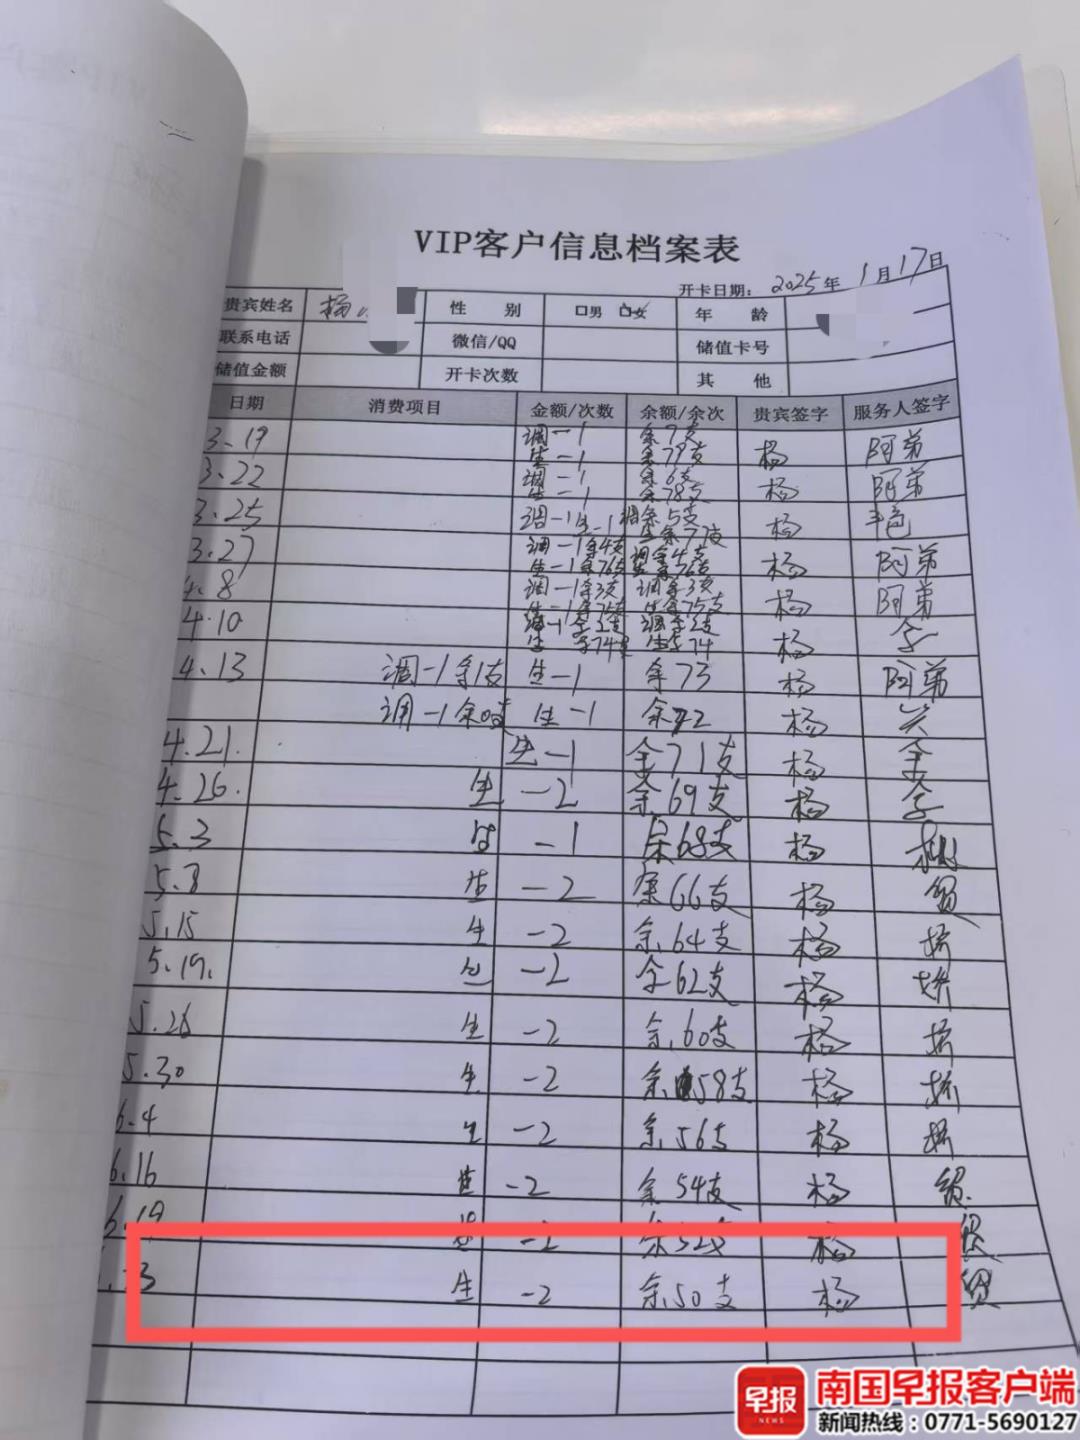 VIP客户信息档案表
开卡日期：2025年1月17日
贵宾姓名 杨 性别 口男 口女 年龄
联系电话 微信/QQ 储值卡号
储值金额 开卡次数 其他
日期 消费项目 金额/次数 余额/余次 贵宾签字 服务人签字
3.19 调-1 余7支 杨 阿弟
生-1 余79支
3.22 调-1 余6支 杨 阿弟
生-1 余78支
3.25 调-1 生-1 调余5支 杨
余77支
3.27 调-1余4支 调余4支 杨 阿弟
生-1余76支 余76支
4.8 调-1余3支 调余3支 杨 阿弟
生-1余75支 生余75支
4.10 调-1余2支 调余2支 杨
生 余74支 生余74
4.13 调-1余1支 生-1 余73 杨 阿弟
调-1余0支 生-1 余72 杨
4.21. 生-1 余71支 杨
4.26. 生 -2 余69支 杨
5.3 -1 余68支 杨
5.8 生 -2 余66支 杨
5.15 生 -2 余64支 杨
5.19. -2 余62支 杨
5.26 生 -2 余60支 杨
5.30 生 -2 余58支 杨
6.4 生 -2 余56支 杨
6.16 生 -2 余54支 杨
6.19 -2 余52支 杨
生 -2 余50支 杨
早报
NEWS
南国早报客户端
新闻热线：0771-5690127